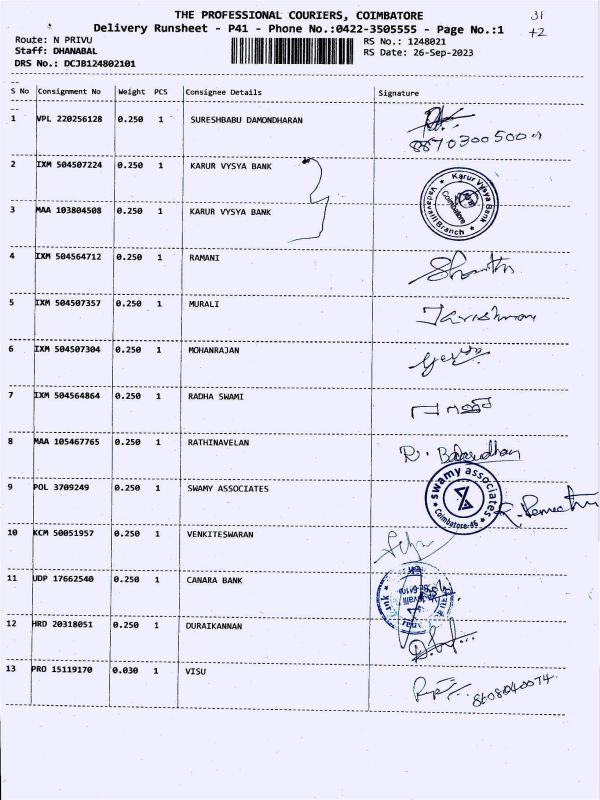 THE PROFESSIONAL COURIERS, COIMBATORE
31
Delivery Runsheet - P41 - Phone No.:0422-3505555 - Page No.:1
+2
Route: N PRIVU
RS No.: 1248021
Staff: DHANABAL
RS Date: 26-Sep-2023
DRS No.: DCJB124802101
S No Consignment No Weight PCS Consignee Details Signature
1 VPL 220256128 0.250 1 SURESHBABU DAMONDHARAN
2 IXM 504507224 0.250 1 KARUR VYSYA BANK
Karur Vysya Bank
Coimbatore
Vadavalli Branch
3 MAA 103804508 0.250 1 KARUR VYSYA BANK
4 IXM 504564712 0.250 1 RAMANI
5 IXM 504507357 0.250 1 MURALI
6 IXM 504507304 0.250 1 MOHANRAJAN
7 IXM 504564864 0.250 1 RADHA SWAMI
8 MAA 105467765 0.250 1 RATHINAVELAN
9 POL 3709249 0.250 1 SWAMY ASSOCIATES
swamy associates
Coimbatore-45
10 KCM 50051957 0.250 1 VENKITESWARAN
11 UDP 17662540 0.250 1 CANARA BANK
12 HRD 20318051 0.250 1 DURAIKANNAN
13 PRO 15119170 0.030 1 VISU
8608040074